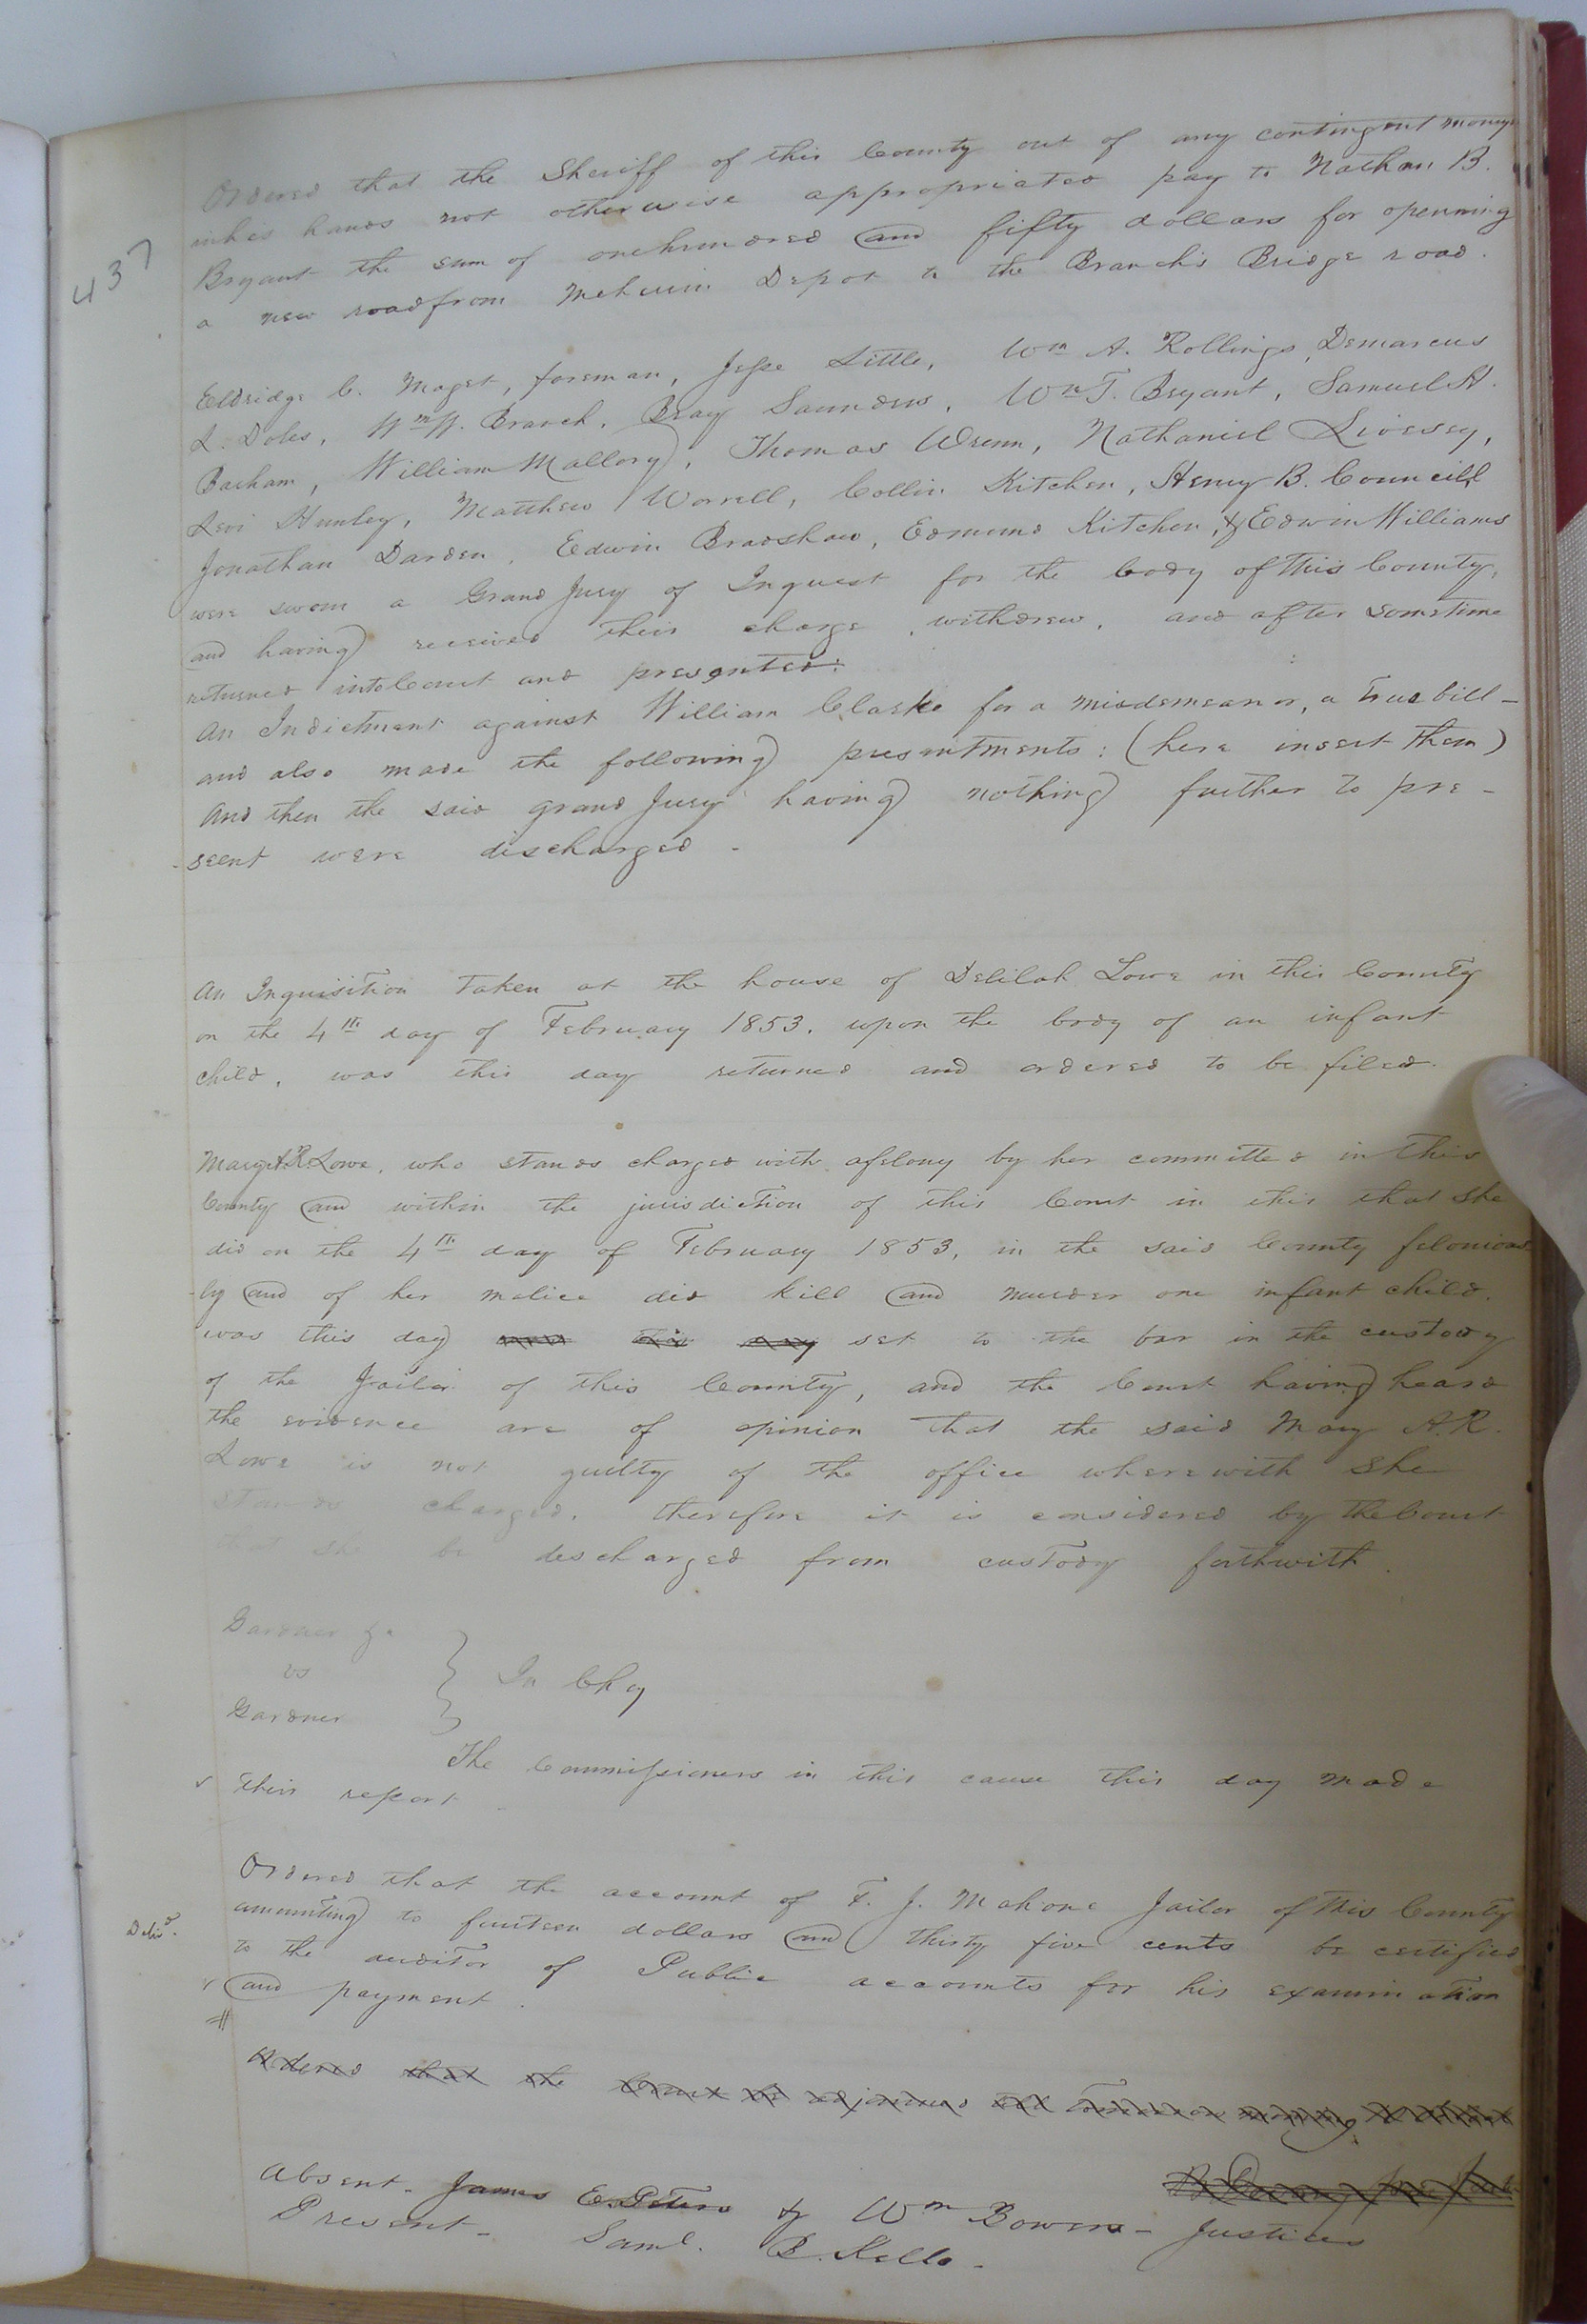 437
Ordered that the Sheriff of this County out of any contingent moneys
in his hands not otherwise appropriated pay to Nathan B.
Bryant the sum of one hundred and fifty dollars for openning
a new road from Meherrin Depot to the Branch's Bridge road.
Eldridge C. Maget, foreman, Jesse Little, Wm A. Rollings, Demarcus
L. Doles, Wm H. Branch, Bray Saunders, Wm T. Bryant, Samuel H.
Barham, William Mallory, Thomas Wrenn, Nathaniel Livesey,
Levi Hunley, Matthew Worrell, Collin Kitchen, Henry B. Councill
Jonathan Darden, Edwin Bradshaw, Edmund Kitchen, & Edwin Williams
were sworn a Grand Jury of Inquest for the body of this County,
and having received their charge, withdrew, and after sometime
returned into Court and presented:
An Indictment against William Clarke for a misdemeanor, a true bill -
and also made the following presentments: (here insert them)
And then the said grand Jury having nothing further to pre-
sent were discharged -
An Inquisition taken at the house of Delilah Lowe in this County
on the 4th day of February 1853. upon the body of an infant
child, was this day returned and ordered to be filed.
Mary A. R. Lowe, who stands charged with a felony by her committed in this
County and within the jurisdiction of this Court in this that she
did on the 4th day of February 1853, in the said County felonious-
ly and of her malice did kill and murder one infant child.
was this day was this day set to the bar in the custody
of the Jailor of this County, and the Court having heard
the evidence are of opinion that the said Mary A. R.
Lowe is not guilty of the office wherewith she
stands charged, therefore it is considered by the Court
that she be discharged from custody forthwith.
Gardner &c
vs } In Chy
Gardner
The Commissioners in this cause this day made
their report
Ordered that the account of F. J. Mahone Jailor of this County
amounting to fourteen dollars and thirty five cents be certified
Delivd.
to the auditor of Public accounts for his examination
and payment.
Ordered that the Court be adjourned till Tomorrow morning
Absent. James E. Peters & Wm Bowers - Justices
Present - Saml. B. Kello -